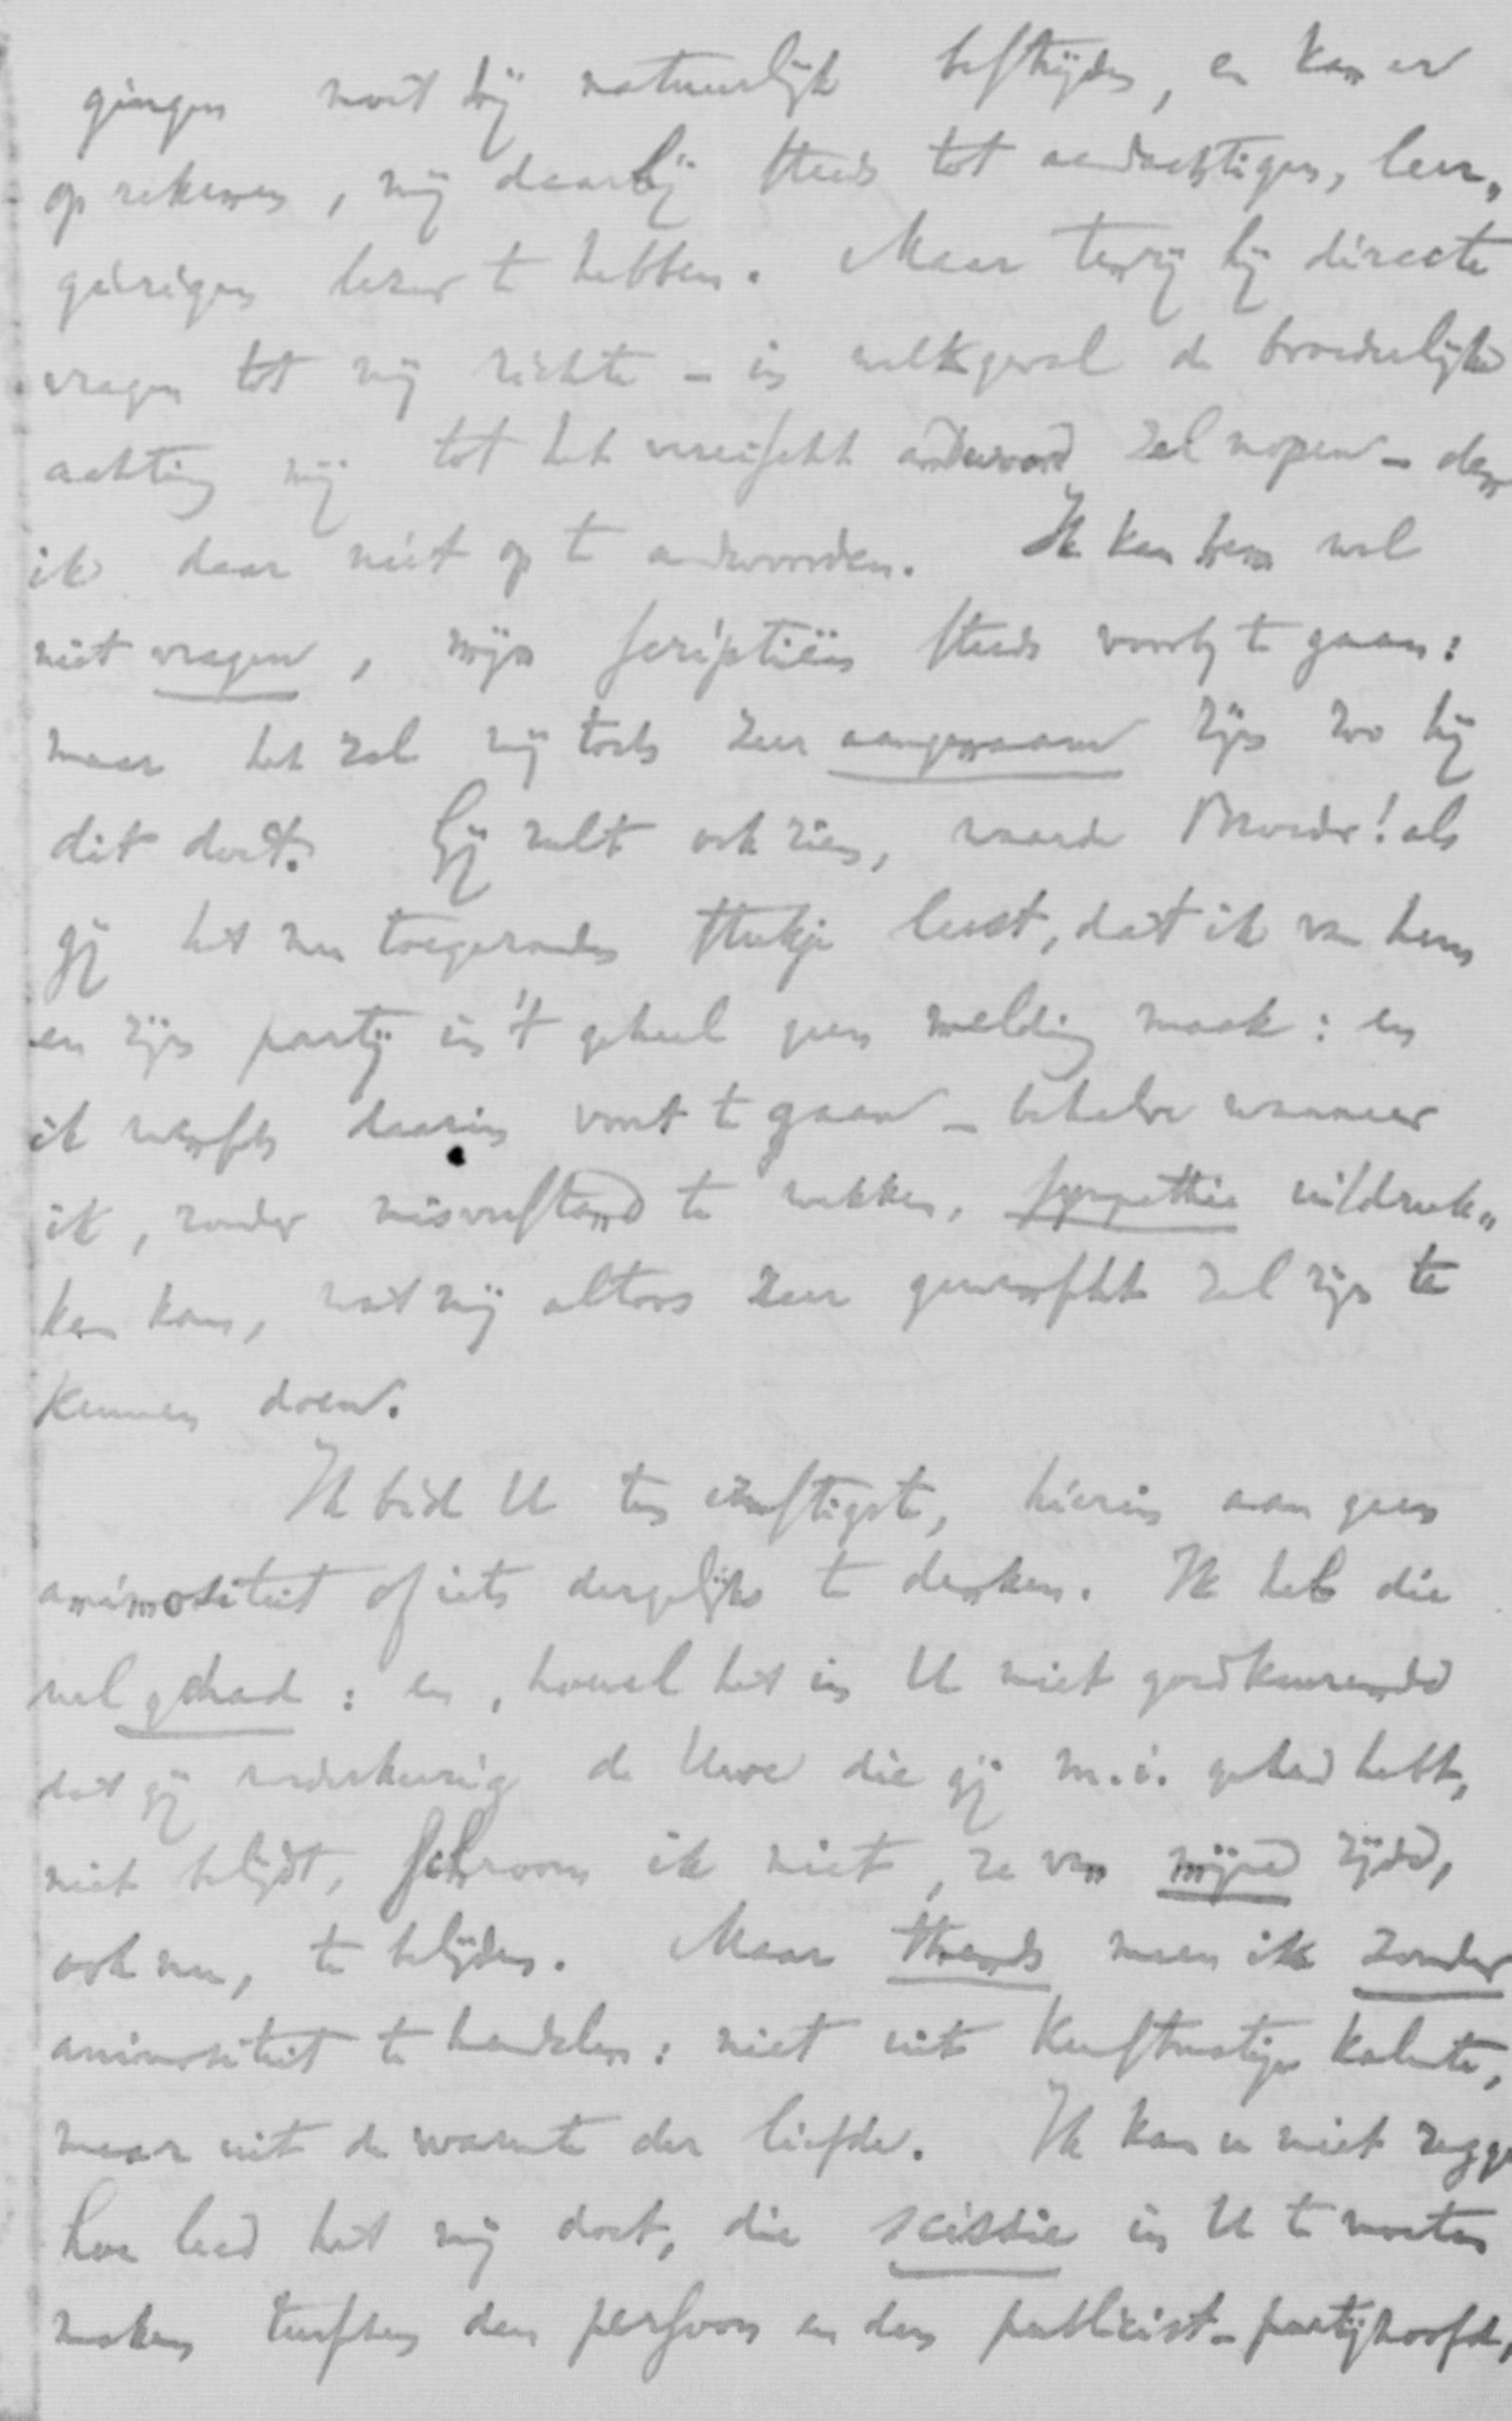 gingen moet hij natuurlijk bestrijden, en kan er
op rekenen, mij daarbij steeds tot aandachtigen, leer„
gierigen lezer te hebben. Maar tenzij hij directe
vragen tot mij richte – in welk geval de broederlijke
achting mij tot het vereischte antwoord zal nopen – denk
ik daar niet op te andwoorden. Ik kan hem wel
niet vragen, mijn scriptiën steeds voorbij te gaan:
maar het zal mij toch zeer aangenaam zijn zoo hij
dit doet. Gij zult ook zien, waarde Broeder! als
gij het nu toegezonden stukje leest, dat ik van hem
en zijn partij in 't geheel geen melding maak: en
ik wensch daarin voort te gaan – behalve wanneer
ik, zonder misverstand te wekken, sympathie uitdruk„
ken kan, wat mij altoos zeer gewenscht zal zijn te
kunnen doen.
Ik bid U ten ernstigste, hierin aan geen
animositeit of iets dergelijks te denken. Ik heb die
wel gehad: en, hoewel het in U niet goedkeurende
dat gij wederkeerig de Uwe die gij m.i. gehad hebt,
niet belijdt, schroom ik niet, ze van mijne zijde,
ook nu, te belijden. Maar thands meen ik zonder
animositeit te handelen: niet uit kunstmatige kalmte,
maar uit de warmte der liefde. Ik kan u niet zeggen
hoe leed het mij doet, die scissie in U te moeten
maken tusschen den persoon en den publicist-partijhoofd,